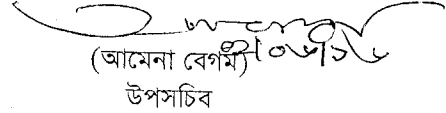 (আমেনা বেগম)
উপসচিব